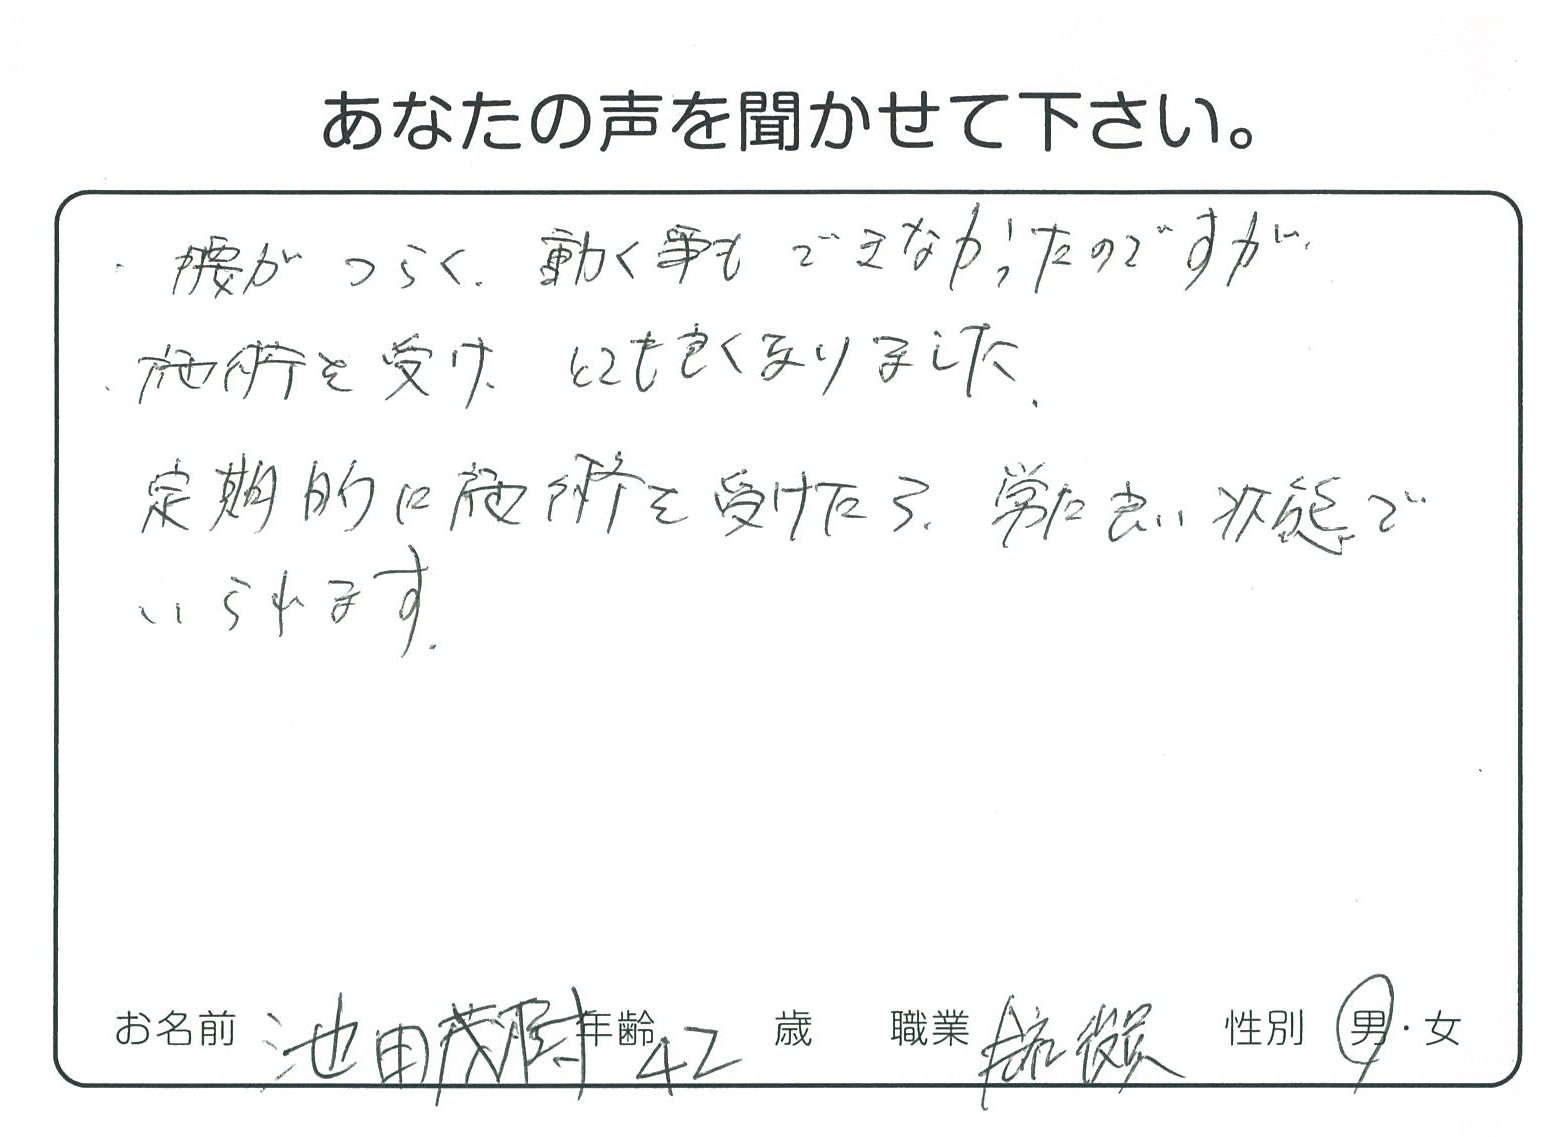 あなたの声を聞かせて下さい。
腰がつらく、動く事もできなかったのですが、
施術を受け、とても良くなりました。
定期的に施術を受けたら、常に良い状態で
いられます。
お名前 池田茂 年齢 42 歳 職業 役員 性別 男・女